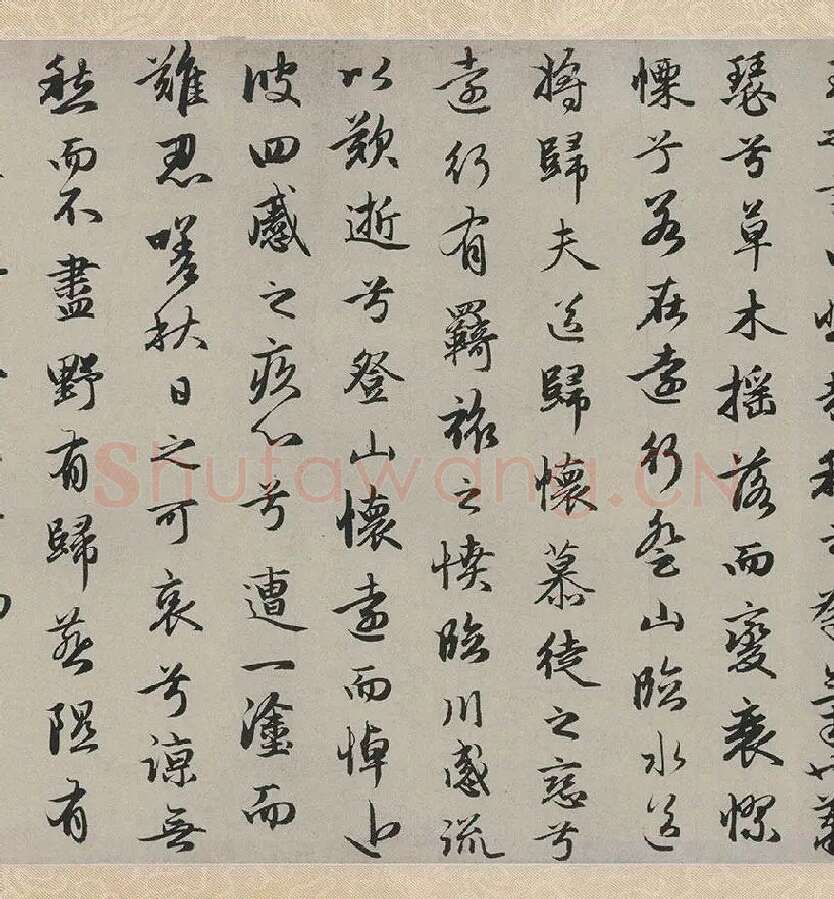 瑟兮草木搖落而變衰憭
慄兮若在遠行登山臨水送
將歸夫送歸懷慕徒之戀兮
遠行有羈旅之憤臨川感流
以歎逝兮登山懷遠而悼近
彼四慼之疚心兮遭一塗而
難忍嗟秋日之可哀兮諒無
愁而不盡野有歸燕隰有
Shufawang.CN